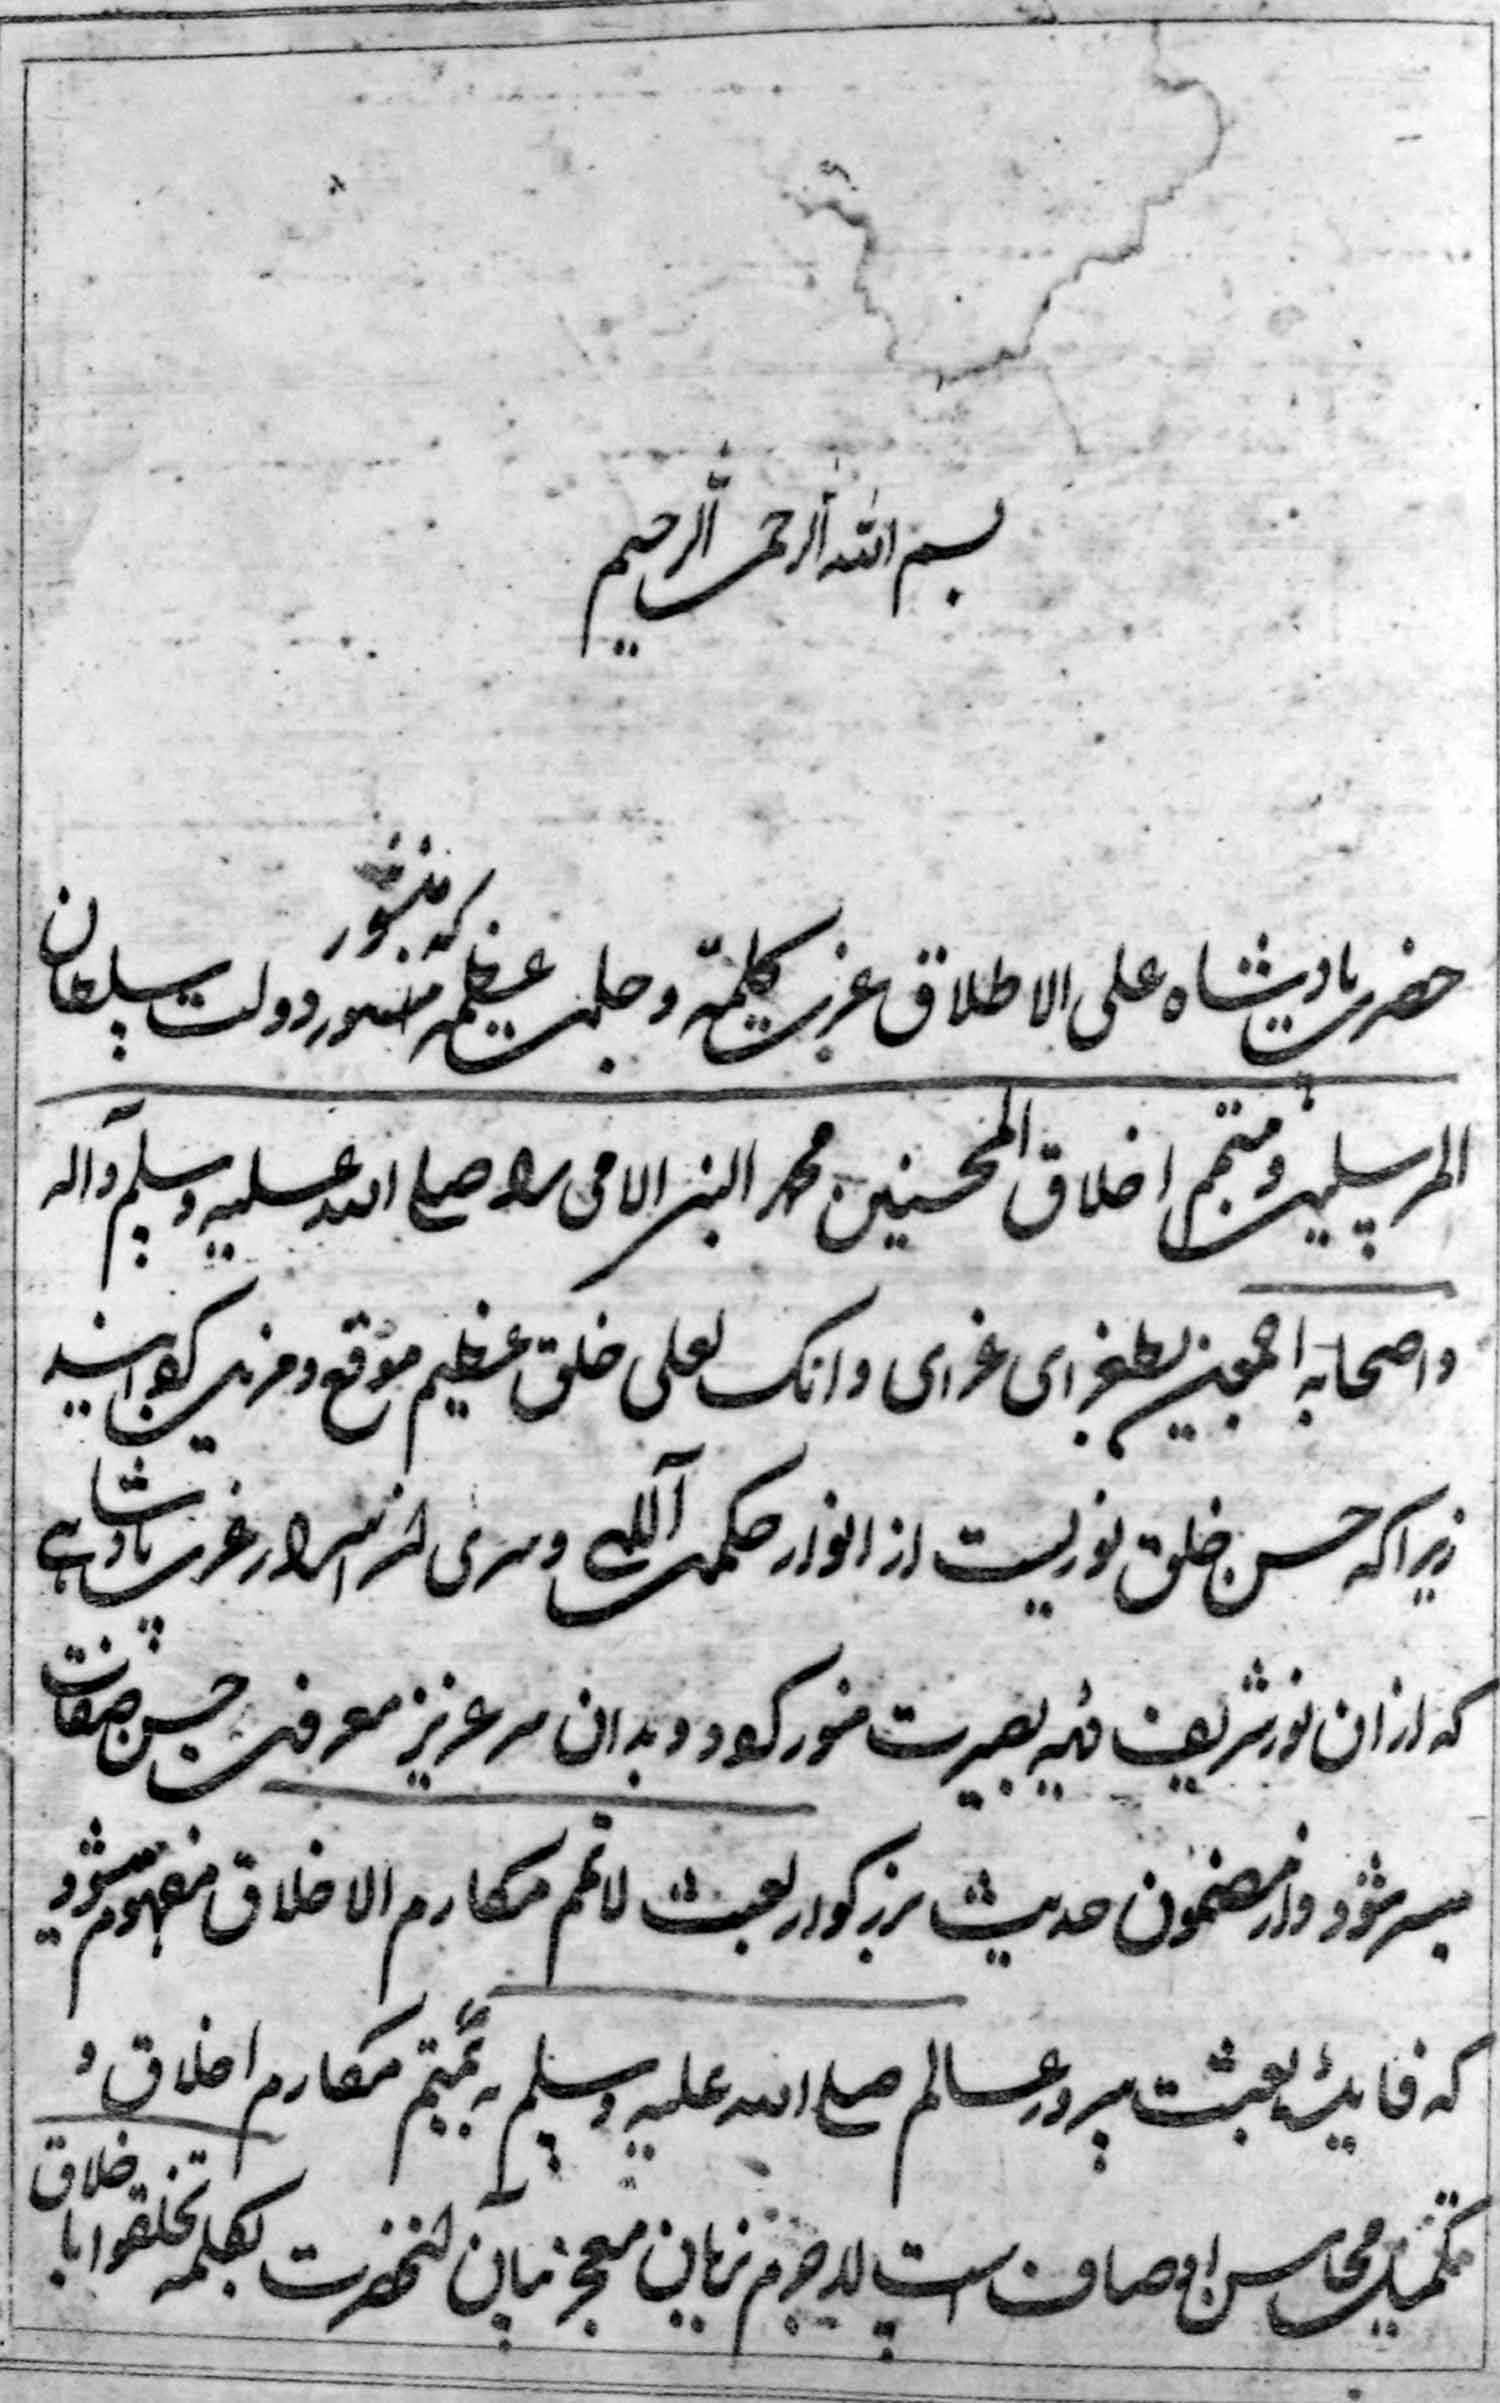 بسم الله الرحمن الرحیم
منشور
حضرت پادشاه علی الاطلاق عزت کلمته و جلت عظمته که منشور دولت سلطان
المرسلین و متمم اخلاق المحسنین محمد النبی الامی را صلی الله علیه وسلم وآله
واصحابه اجمعین بطغرای غرای وانک لعلی خلق عظیم موقع و مزین گردانید
زیرا که حسن خلق نوریست از انوار حکمت آلهی و سری از اسرار عزت پادشاهی
که از ان نور شریف دیده بصیرت منور گردد و بدان سر عزیز معرفت حسن صفات
میسر شود و از مضمون حدیث بزرگوار بعثت لاتمم مکارم الاخلاق مفهوم میشود
که فایده بعثت سرور عالم صلی الله علیه وسلم به تتمیم مکارم اخلاق و
تکمیل محاسن اوصاف است لاجرم زبان معجز بیان آنحضرت بکلمه تخلقوا باخلاق